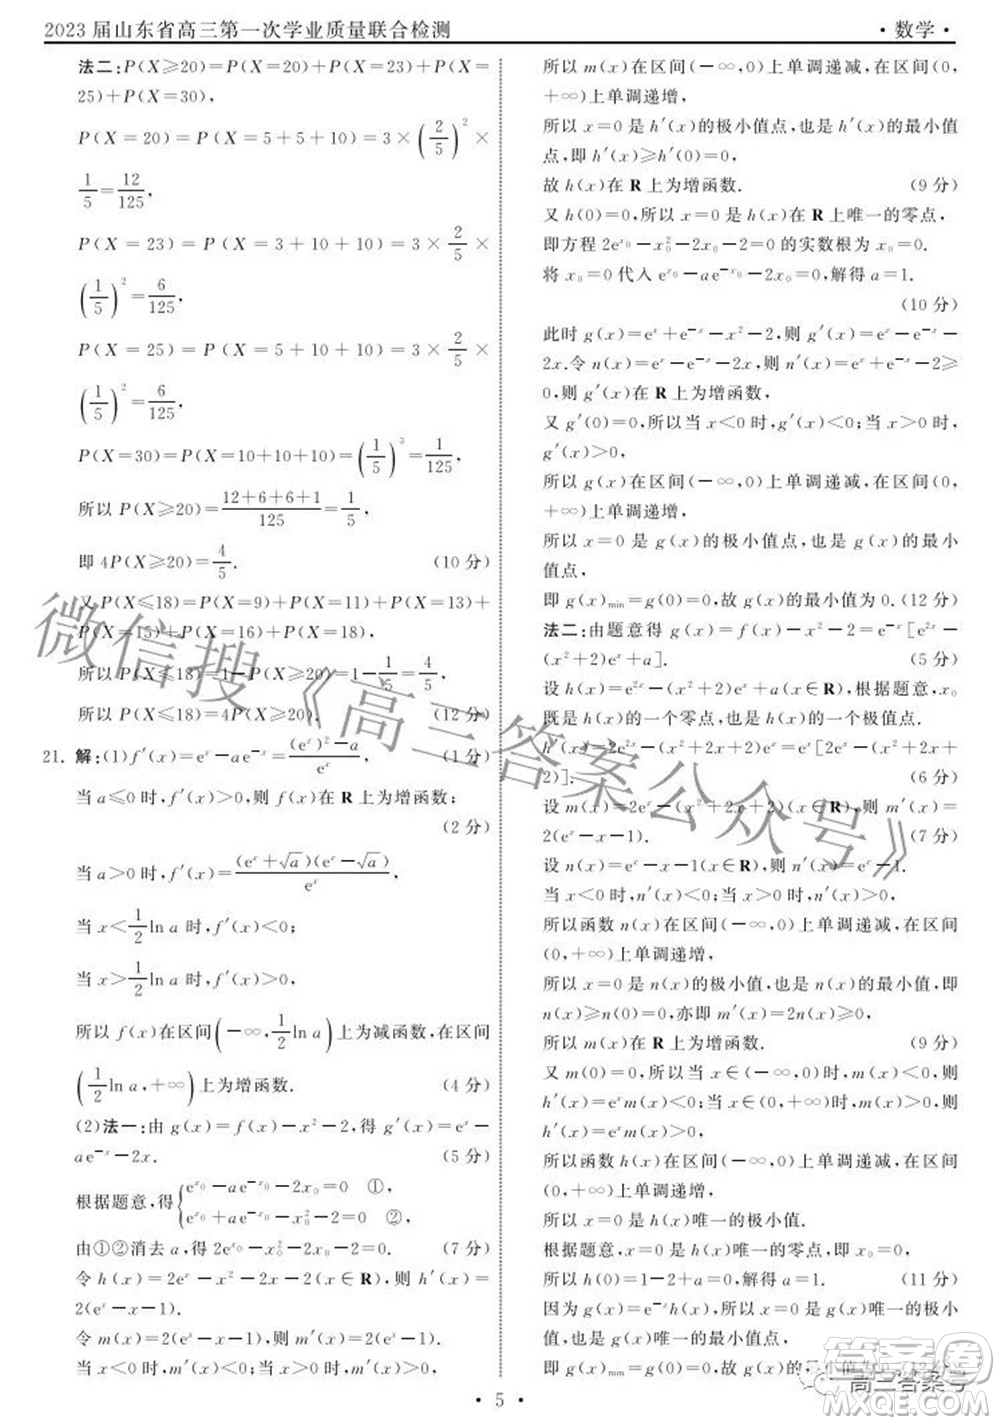 2023 届山东省高三第一次学业质量联合检测
• 数学 •
法二:P(X⩾20)=P(X=20)+P(X=23)+P(X=
25)+P(X=30),
P(X=20)=P(X=5+5+10)=3×(2/5)²×
1/5=12/125,
P(X=23)=P(X=3+10+10)=3×2/5×
(1/5)²=6/125,
P(X=25)=P(X=5+10+10)=3×2/5×
(1/5)²=6/125,
P(X=30)=P(X=10+10+10)=(1/5)³=1/125,
所以 P(X⩾20)=(12+6+6+1)/125=1/5,
即 4P(X⩾20)=4/5. (10 分)
又 P(X⩽18)=P(X=9)+P(X=11)+P(X=13)+
P(X=15)+P(X=16)+P(X=18),
所以 P(X⩽18)=1-P(X⩾20)=1-1/5=4/5,
所以 P(X⩽18)=4P(X⩾20). (12 分)
21. 解:(1)f′(x)=eˣ-ae⁻ˣ=((eˣ)²-a)/eˣ. (1 分)
当 a⩽0 时,f′(x)>0,则 f(x)在 R 上为增函数;
(2 分)
当 a>0 时,f′(x)=(eˣ+√a)(eˣ-√a)/eˣ,
当 x<1/2 ln a 时,f′(x)<0;
当 x>1/2 ln a 时,f′(x)>0,
所以 f(x)在区间(-∞,1/2 ln a)上为减函数,在区间
(1/2 ln a,+∞)上为增函数. (4 分)
(2)法一:由 g(x)=f(x)-x²-2,得 g′(x)=eˣ-
ae⁻ˣ-2x. (5 分)
根据题意,得{e^{x₀}-ae^{-x₀}-2x₀=0 ①,
e^{x₀}+ae^{-x₀}-x₀²-2=0 ②,
由①②消去 a,得 2e^{x₀}-x₀²-2x₀-2=0. (7 分)
令 h(x)=2eˣ-x²-2x-2(x∈R),则 h′(x)=
2(eˣ-x-1).
令 m(x)=eˣ-x-1,则 m′(x)=eˣ-1.
当 x<0 时,m′(x)<0;当 x>0 时,m′(x)>0,
所以 m(x)在区间(-∞,0)上单调递减,在区间(0,
+∞)上单调递增,
所以 x=0 是 h′(x)的极小值点,也是 h′(x)的最小值
点,即 h′(x)⩾h′(0)=0,
故 h(x)在 R 上为增函数. (9 分)
又 h(0)=0,所以 x=0 是 h(x)在 R 上唯一的零点,
即方程 2e^{x₀}-x₀²-2x₀-2=0 的实数根为 x₀=0.
将 x₀=0 代入 e^{x₀}-ae^{-x₀}-2x₀=0,解得 a=1.
(10 分)
此时 g(x)=eˣ+e⁻ˣ-x²-2,则 g′(x)=eˣ-e⁻ˣ-
2x.令 n(x)=eˣ-e⁻ˣ-2x,则 n′(x)=eˣ+e⁻ˣ-2⩾
0,则 g′(x)在 R 上为增函数.
又 g′(0)=0,所以当 x<0 时,g′(x)<0;当 x>0 时,
g′(x)>0,
所以 g(x)在区间(-∞,0)上单调递减,在区间(0,
+∞)上单调递增,
所以 x=0 是 g(x)的极小值点,也是 g(x)的最小
值点,
即 g(x)min=g(0)=0,故 g(x)的最小值为 0.(12 分)
法二:由题意得 g(x)=f(x)-x²-2=e⁻ˣ[e²ˣ-
(x²+2)eˣ+a]. (5 分)
设 h(x)=e²ˣ-(x²+2)eˣ+a(x∈R),根据题意,x₀
既是 h(x)的一个零点,也是 h(x)的一个极小值点.
h′(x)=2e²ˣ-(x²+2x+2)eˣ=eˣ[2eˣ-(x²+2x+
2)]. (6 分)
设 m(x)=2eˣ-(x²+2x+2)(x∈R),则 m′(x)=
2(eˣ-x-1). (7 分)
设 n(x)=eˣ-x-1(x∈R),则 n′(x)=eˣ-1.
当 x<0 时,n′(x)<0;当 x>0 时,n′(x)>0,
所以函数 n(x)在区间(-∞,0)上单调递减,在区间
(0,+∞)上单调递增,
所以 x=0 是 n(x)的极小值点,也是 n(x)的最小值点,
即 n(x)⩾n(0)=0,亦即 m′(x)=2n(x)⩾0,
所以 m(x)在 R 上为增函数. (9 分)
又 m(0)=0,所以当 x∈(-∞,0)时,m(x)<0,
h′(x)=eˣm(x)<0;当 x∈(0,+∞)时,m(x)>0,
h′(x)=eˣm(x)>0,
所以函数 h(x)在区间(-∞,0)上单调递减,在区间
(0,+∞)上单调递增,
所以 h(0)是 h(x)唯一的极小值.
根据题意,h(0)是 h(x)唯一的零点,即 x₀=0,
所以 h(0)=1-2+a=0,解得 a=1. (11 分)
因为 g(x)=e⁻ˣh(x)⩾0,所以 0 是 g(x)唯一的极小
值,也是 g(x)唯一的最小值,
即 g(x)⩾g(0)=0,故 g(x)的
• 5 •
微信搜《高三答案公众号》
答案圈
高三答案号